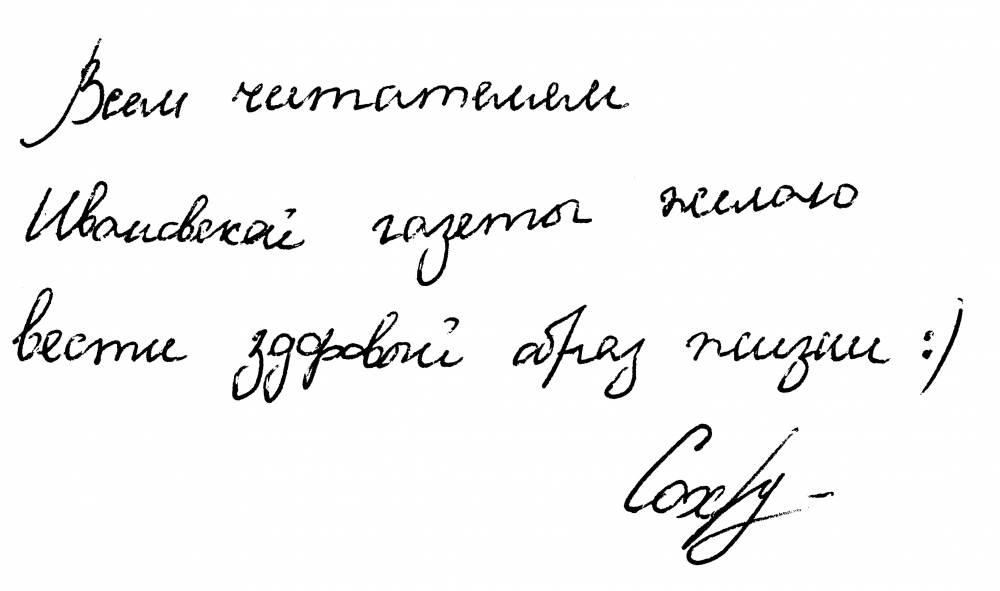 Всем читателям
Ивановской газеты желаю
вести здоровый образ жизни :)